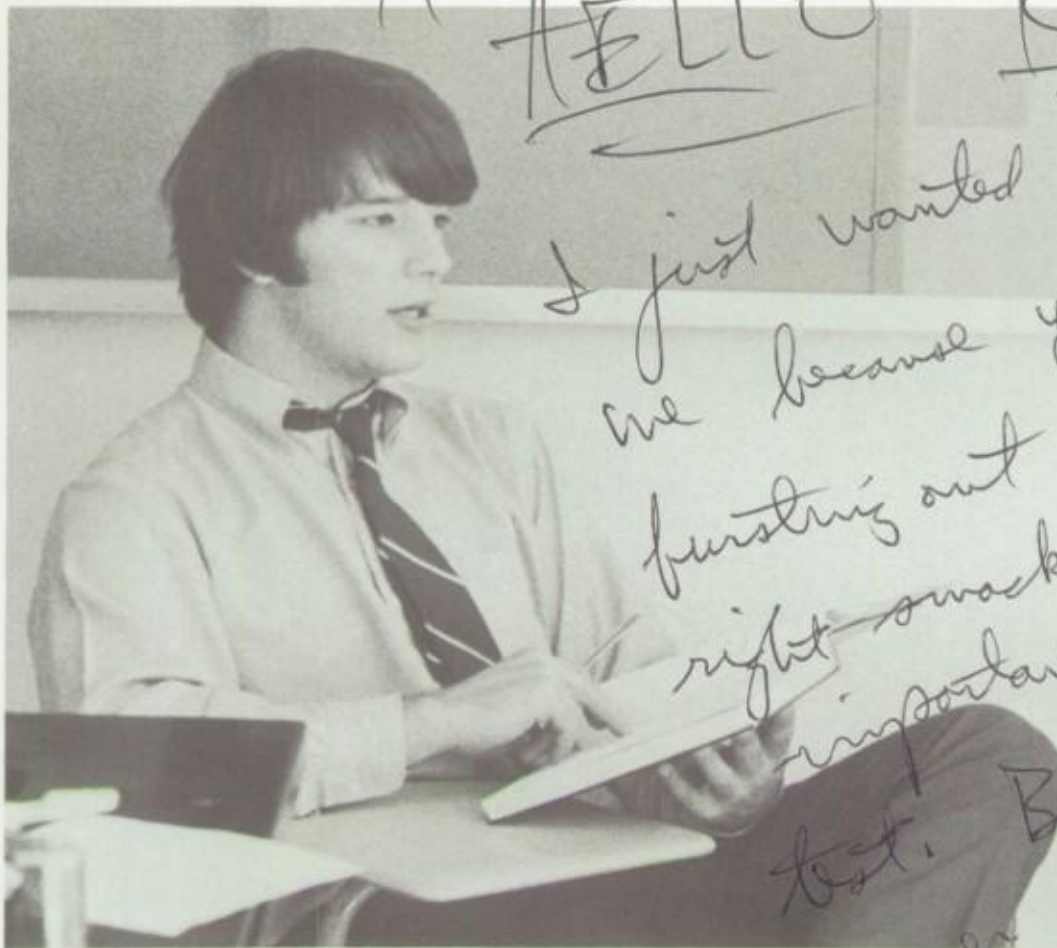 HELLO
I just wanted
me because
bursting out
right smack
importan
test. B